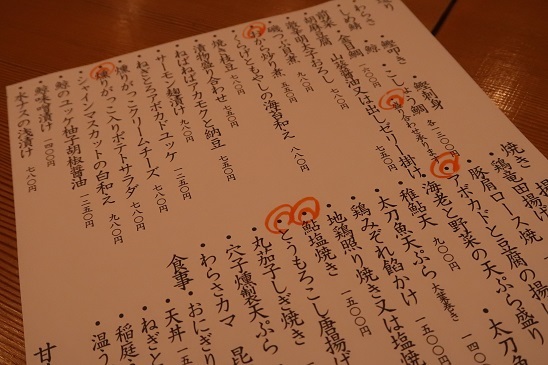 わさび
しめ鯖
鯨
鰹叩き
鰹刺身
胡麻豆腐
金目鯛
一二〇〇円
こしょう鯛
各一三〇〇円
激辛明太子おろし
山葵醤油又は出しゼリー掛け
磯つぶ旨煮
わかさぎ
らげともやしの海苔和え
八八〇円
焼き枝豆
七八〇円
漬物盛り合わせ
七五〇円
ねばねばアカモクと納豆
七五〇円
サーモン麹漬け
七八〇円
ねぎとろアボカドユッケ
一二五〇円
燻りがっこクリームチーズ
七八〇円
燻りがっこ入りポテトサラダ
七八〇円
シャインマスカットの白和え
九八〇円
鯨のユッケ柚子胡椒醤油
一二五〇円
鯨味噌漬け
一四〇〇円
水ナスの浅漬け
七八〇円
焼き
鶏竜田揚げ
豚肩ロース焼
アボカドと豆腐の揚げ
海老と野菜の天ぷら盛り
稚鮎天
九〇〇円
太刀魚天ぷら
大葉巻き
一四
鶏みぞれ餡かけ
太刀魚
地鶏照り焼き又は塩焼
一五〇〇円
鮎塩焼き
一五〇〇円
とうもろこし唐揚げ
丸茄子しぎ焼き
穴子燻製天ぷら
わらさカマ
食事
おにぎり
昆
天丼
一五
ねぎと
稲庭
温う
甘